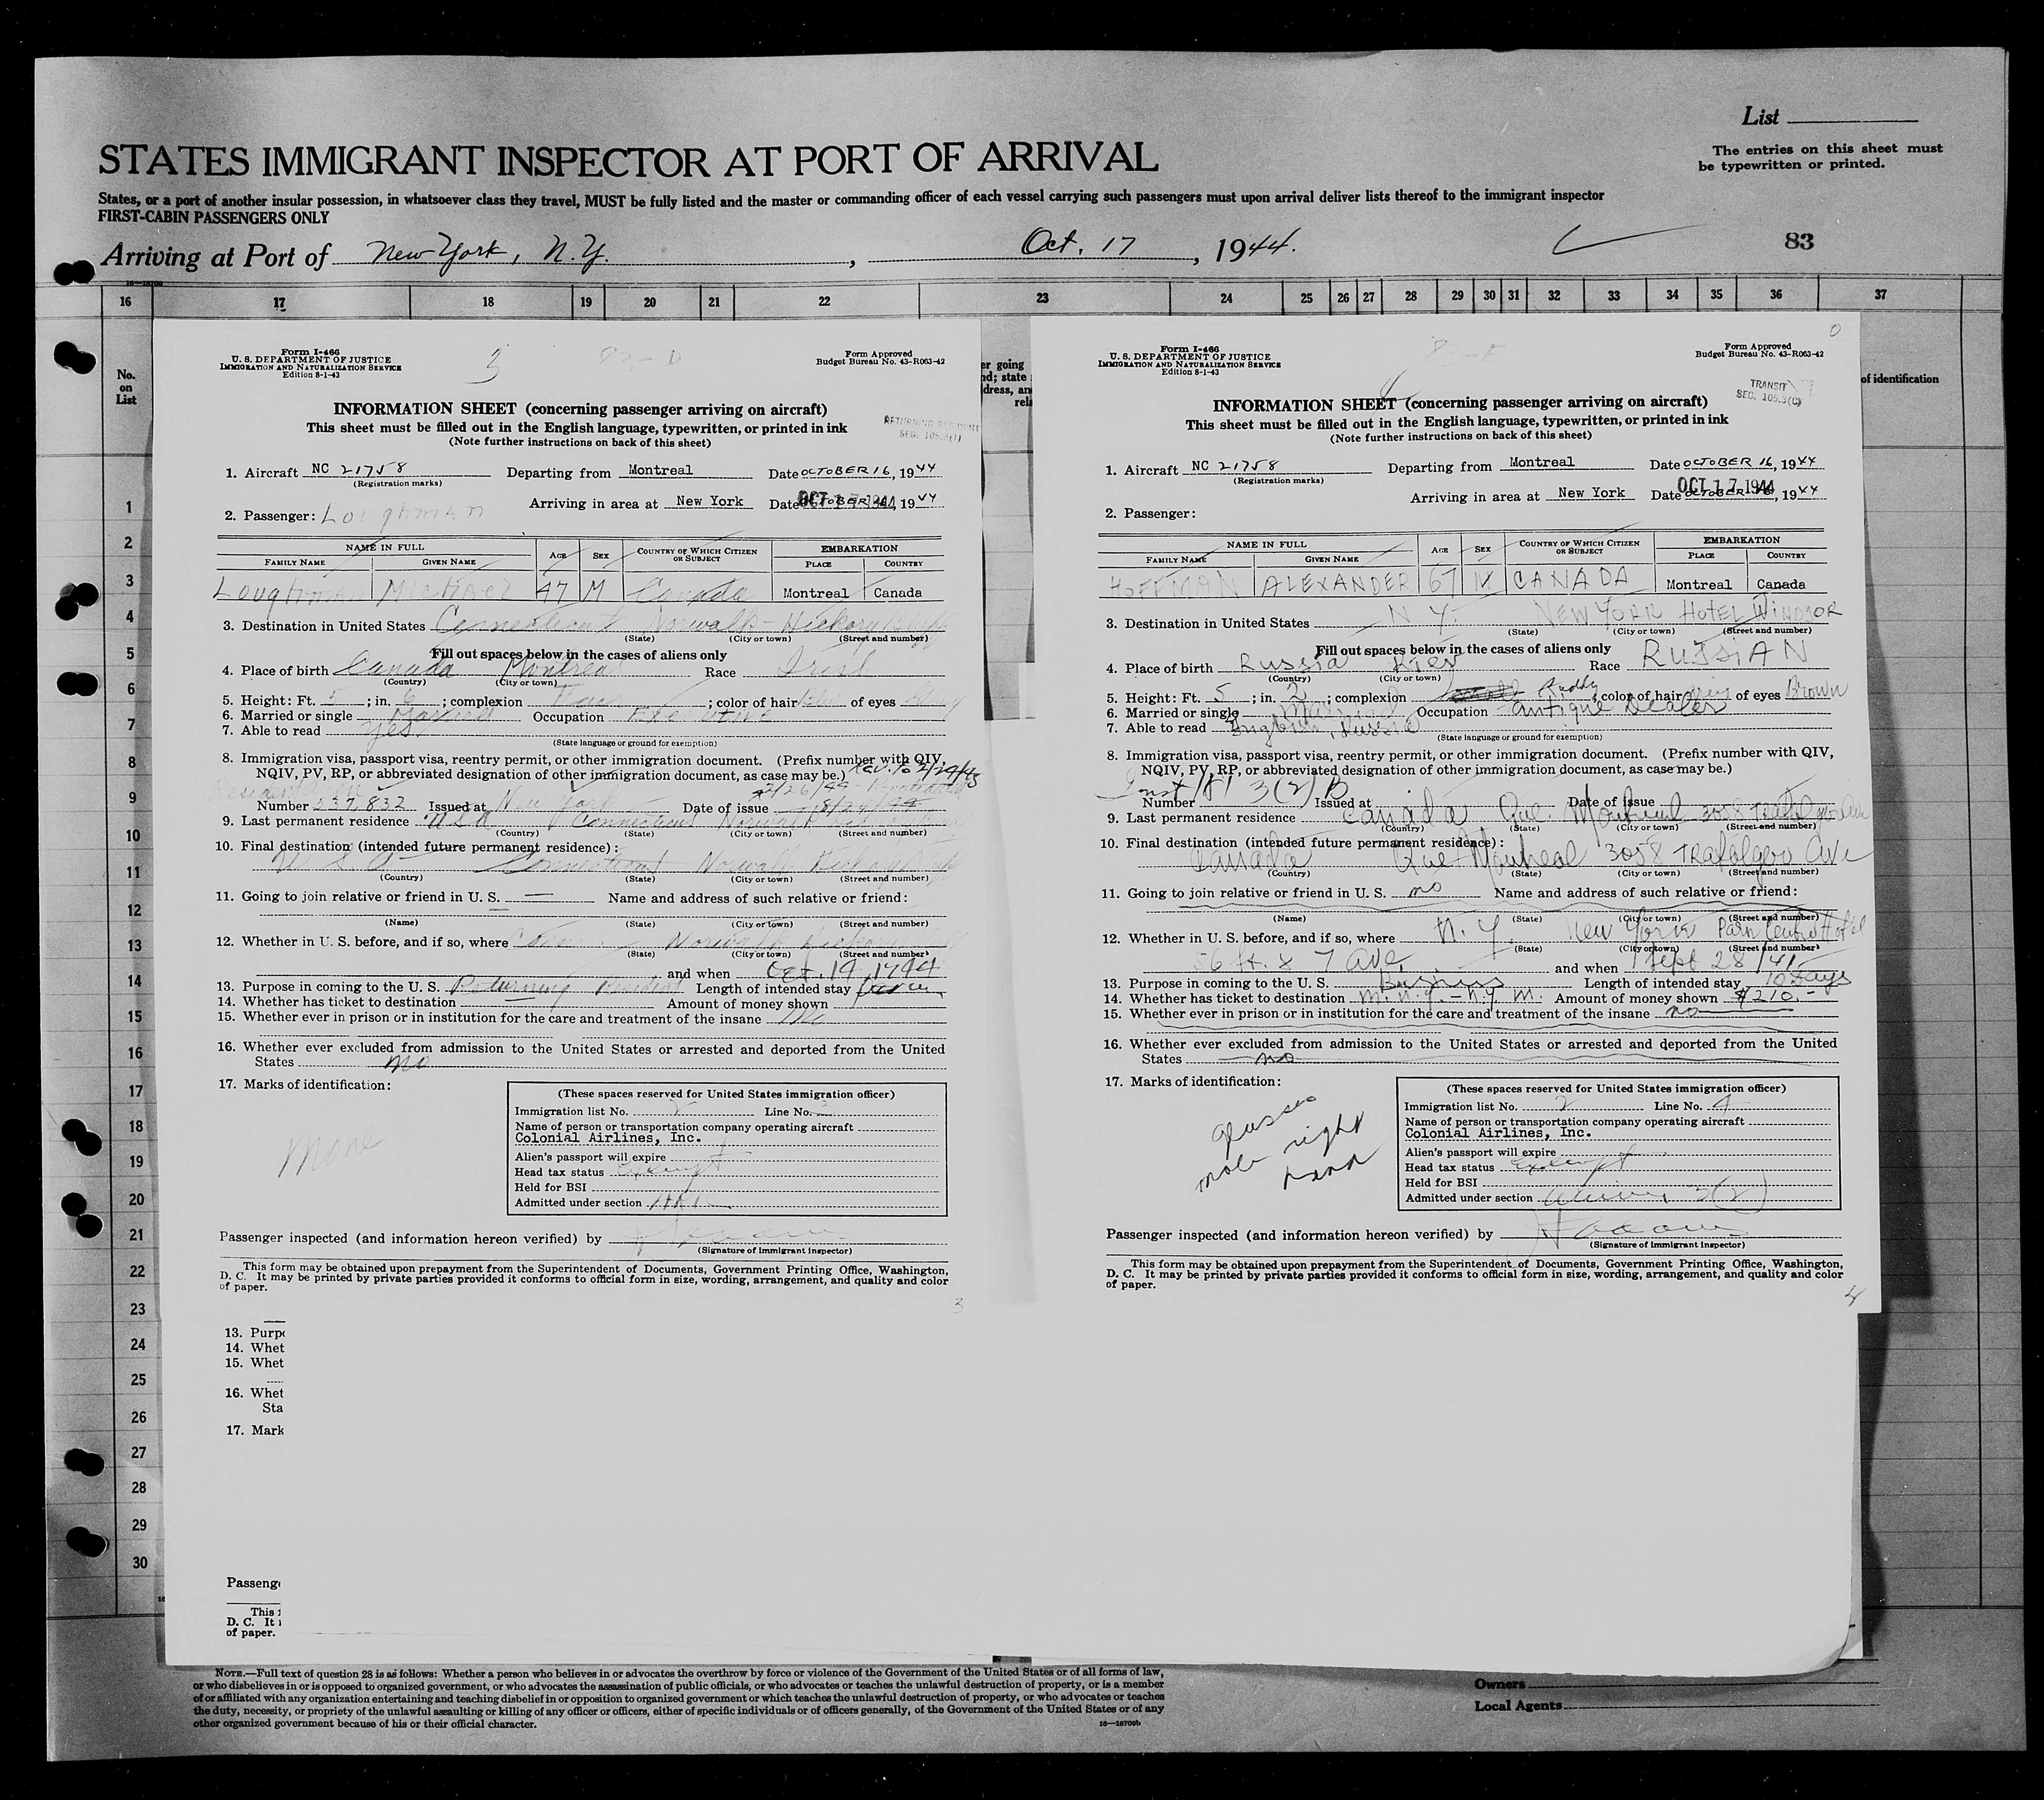 List
The entries on this sheet must
be typewritten or printed.
STATES IMMIGRANT INSPECTOR AT PORT OF ARRIVAL
States, or a port of another insular possession, in whatsoever class they travel, MUST be fully listed and the master or commanding officer of each vessel carrying such passengers must upon arrival deliver lists thereof to the immigrant inspector
FIRST-CABIN PASSENGERS ONLY
Arriving at Port of New York, N.Y., Oct. 17, 1944.
83
16 17 18 19 20 21 22 23 24 25 26 27 28 29 30 31 32 33 34 35 36 37
No.
on
List
1
2
3
4
5
6
7
8
9
10
11
12
13
14
15
16
17
18
19
20
21
22
23
24
25
26
27
28
29
30
Form I-466
U. S. DEPARTMENT OF JUSTICE
IMMIGRATION AND NATURALIZATION SERVICE
Edition 8-1-43
3
Form Approved
Budget Bureau No. 43-R063-42
INFORMATION SHEET (concerning passenger arriving on aircraft)
This sheet must be filled out in the English language, typewritten, or printed in ink
(Note further instructions on back of this sheet)
RETURNING RESIDENT
1. Aircraft NC 21758 Departing from Montreal Date OCTOBER 16, 1944
(Registration marks)
Arriving in area at New York Date OCT 17 1944, 1944
2. Passenger: Loughman
NAME IN FULL AGE SEX COUNTRY OF WHICH CITIZEN OR SUBJECT EMBARKATION
FAMILY NAME GIVEN NAME PLACE COUNTRY
Loughman Michael 47 M Canada Montreal Canada
3. Destination in United States Connecticut Norwalk - Hickory
(State) (City or town) (Street and number)
Fill out spaces below in the cases of aliens only
4. Place of birth Canada Montreal Race Irish
(Country) (City or town)
5. Height: Ft. 5; in. 6; complexion ; color of hair of eyes
6. Married or single Married Occupation Executive
7. Able to read Yes
(State language or ground for exemption)
8. Immigration visa, passport visa, reentry permit, or other immigration document. (Prefix number with QIV,
NQIV, PV, RP, or abbreviated designation of other immigration document, as case may be.)
Number 237,832 Issued at New York Date of issue
9. Last permanent residence USA Connecticut Norwalk
(Country) (State) (City or town) (Street and number)
10. Final destination (intended future permanent residence):
U S A Connecticut Norwalk
(Country) (State) (City or town) (Street and number)
11. Going to join relative or friend in U. S. — Name and address of such relative or friend:
(Name) (State) (City or town) (Street and number)
12. Whether in U. S. before, and if so, where Conn. Norwalk
(State) (City or town) (Street and number)
and when Oct. 14, 1944
13. Purpose in coming to the U. S. Returning Resident Length of intended stay
14. Whether has ticket to destination — Amount of money shown
15. Whether ever in prison or in institution for the care and treatment of the insane No
16. Whether ever excluded from admission to the United States or arrested and deported from the United
States no
17. Marks of identification:
None
(These spaces reserved for United States immigration officer)
Immigration list No. 2 Line No. 3
Name of person or transportation company operating aircraft
Colonial Airlines, Inc.
Alien's passport will expire
Head tax status Exempt
Held for BSI
Admitted under section
Passenger inspected (and information hereon verified) by
(Signature of immigrant inspector)
This form may be obtained upon prepayment from the Superintendent of Documents, Government Printing Office, Washington,
D. C. It may be printed by private parties provided it conforms to official form in size, wording, arrangement, and quality and color
of paper.
3
13. Purpo
14. Whet
15. Whet
16. Whet
Sta
17. Mark
Passenge
This f
D. C. It i
of paper.
er going
nd; state
dress, an
rela
of identification
Form I-466
U. S. DEPARTMENT OF JUSTICE
IMMIGRATION AND NATURALIZATION SERVICE
Edition 8-1-43
Form Approved
Budget Bureau No. 43-R063-42
TRANSIT
SEC. 105.3(C)
INFORMATION SHEET (concerning passenger arriving on aircraft)
This sheet must be filled out in the English language, typewritten, or printed in ink
(Note further instructions on back of this sheet)
1. Aircraft NC 21758 Departing from Montreal Date OCTOBER 16, 1944
(Registration marks)
Arriving in area at New York Date OCT 17 1944, 1944
2. Passenger:
NAME IN FULL AGE SEX COUNTRY OF WHICH CITIZEN OR SUBJECT EMBARKATION
FAMILY NAME GIVEN NAME PLACE COUNTRY
HOFFMAN ALEXANDER 67 M CANADA Montreal Canada
3. Destination in United States N Y. NEW YORK HOTEL WINDSOR
(State) (City or town) (Street and number)
Fill out spaces below in the cases of aliens only
4. Place of birth Russia Kiev Race RUSSIAN
(Country) (City or town)
5. Height: Ft. 5; in. 2; complexion Ruddy, color of hair grey of eyes Brown
6. Married or single Married Occupation antique Dealer
7. Able to read English, Russia
(State language or ground for exemption)
8. Immigration visa, passport visa, reentry permit, or other immigration document. (Prefix number with QIV,
NQIV, PV, RP, or abbreviated designation of other immigration document, as case may be.)
3(2) B
Number Issued at Date of issue
9. Last permanent residence Canada Que. Montreal 3058 Trafalgar Ave
(Country) (State) (City or town) (Street and number)
10. Final destination (intended future permanent residence):
Canada Que Montreal 3058 Trafalgar Ave
(Country) (State) (City or town) (Street and number)
11. Going to join relative or friend in U. S. no Name and address of such relative or friend:
(Name) (State) (City or town) (Street and number)
12. Whether in U. S. before, and if so, where N. Y. New York Park Central Hotel
(State) (City or town) (Street and number)
56 st. & 7 Ave. and when Sept 28/41
13. Purpose in coming to the U. S. Business Length of intended stay 10 days
14. Whether has ticket to destination M. N.Y. - N.Y M. Amount of money shown $210.-
15. Whether ever in prison or in institution for the care and treatment of the insane no
16. Whether ever excluded from admission to the United States or arrested and deported from the United
States no
17. Marks of identification:
glasses
mole right
hand
(These spaces reserved for United States immigration officer)
Immigration list No. 2 Line No. 4
Name of person or transportation company operating aircraft
Colonial Airlines, Inc.
Alien's passport will expire
Head tax status Exempt
Held for BSI
Admitted under section 3(2)
Passenger inspected (and information hereon verified) by
(Signature of immigrant inspector)
This form may be obtained upon prepayment from the Superintendent of Documents, Government Printing Office, Washington,
D. C. It may be printed by private parties provided it conforms to official form in size, wording, arrangement, and quality and color
of paper.
4
NOTE.—Full text of question 28 is as follows: Whether a person who believes in or advocates the overthrow by force or violence of the Government of the United States or of all forms of law,
or who disbelieves in or is opposed to organized government, or who advocates the assassination of public officials, or who advocates or teaches the unlawful destruction of property, or is a member
of or affiliated with any organization entertaining and teaching disbelief in or opposition to organized government or which teaches the unlawful destruction of property, or who advocates or teaches
the duty, necessity, or propriety of the unlawful assaulting or killing of any officer or officers, either of specific individuals or of officers generally, of the Government of the United States or of any
other organized government because of his or their official character.
16—18709b
Owners
Local Agents